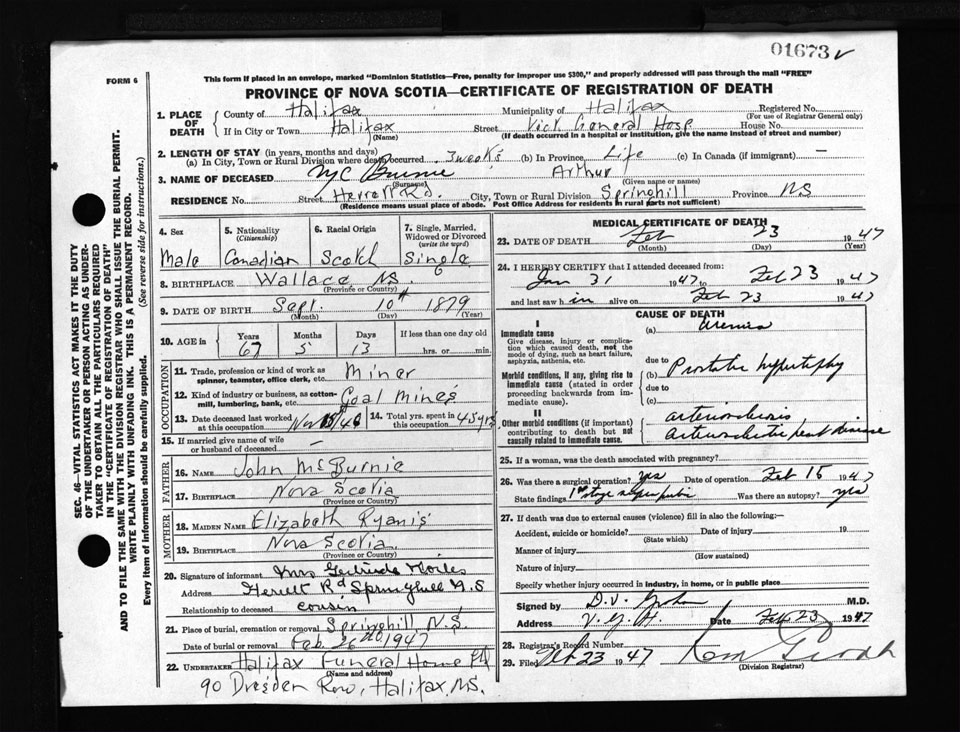 01673
FORM 6
This form if placed in an envelope, marked "Dominion Statistics—Free, penalty for improper use $300," and properly addressed will pass through the mail "FREE"
PROVINCE OF NOVA SCOTIA—CERTIFICATE OF REGISTRATION OF DEATH
SEC. 46—VITAL STATISTICS ACT MAKES IT THE DUTY
OF THE UNDERTAKER OR PERSON ACTING AS UNDER-
TAKER TO OBTAIN ALL THE PARTICULARS REQUIRED
IN THE "CERTIFICATE OF REGISTRATION OF DEATH"
AND TO FILE THE SAME WITH THE DIVISION REGISTRAR WHO SHALL ISSUE THE BURIAL PERMIT.
WRITE PLAINLY WITH UNFADING INK. THIS IS A PERMANENT RECORD.
Every item of information should be carefully supplied. (See reverse side for instructions.)
1. PLACE OF DEATH County of Halifax Municipality of Halifax Registered No.
(For use of Registrar General only)
If in City or Town Halifax Street Vict General Hosp House No.
(Name) (If death occurred in a hospital or institution, give the name instead of street and number)
2. LENGTH OF STAY (in years, months and days)
(a) In City, Town or Rural Division where death occurred 3 weeks (b) In Province Life (c) In Canada (if immigrant) —
3. NAME OF DECEASED Mc Burnie Arthur
(Surname) (Given name or names)
RESIDENCE No. Street Herrett Rd. City, Town or Rural Division Springhill Province NS
(Residence means usual place of abode. Post Office Address for residents in rural parts not sufficient)
4. Sex 5. Nationality (Citizenship) 6. Racial Origin 7. Single, Married, Widowed or Divorced (write the word)
Male Canadian Scotch Single
8. BIRTHPLACE Wallace NS.
(Province or Country)
9. DATE OF BIRTH Sept. 10th 1879
(Month) (Day) (Year)
10. AGE in Years Months Days If less than one day old
67 5 13 hrs. or min
OCCUPATION
11. Trade, profession or kind of work as spinner, teamster, office clerk, etc. Miner
12. Kind of industry or business, as cotton-mill, lumbering, bank, etc. Coal Mines
13. Date deceased last worked at this occupation Nov 46 14. Total yrs. spent in this occupation 45 yrs
15. If married give name of wife or husband of deceased —
FATHER
16. NAME John McBurnie
17. BIRTHPLACE Nova Scotia
(Province or Country)
MOTHER
18. MAIDEN NAME Elizabeth
19. BIRTHPLACE Nova Scotia
(Province or Country)
20. Signature of informant Mrs Gertrude
Address Herrett Rd Springhill N.S
Relationship to deceased cousin
21. Place of burial, cremation or removal Springhill N.S.
Date of burial or removal Feb. 26th 1947
22. UNDERTAKER Halifax Funeral Home Ltd
(Name and address)
90 Dresden Row, Halifax, NS.
MEDICAL CERTIFICATE OF DEATH
23. DATE OF DEATH Feb 23 1947
(Month) (Day) (Year)
24. I HEREBY CERTIFY that I attended deceased from:
Jan 31 1947 to Feb 23 1947
and last saw him alive on Feb 23 1947
CAUSE OF DEATH
I
Immediate cause (a) Uremia
Give disease, injury or complica-
tion which caused death, not the
mode of dying, such as heart failure,
asphyxia, asthenia, etc.
due to
Morbid conditions, if any, giving rise to (b) Prostatic hypertrophy
immediate cause (stated in order
proceeding backwards from im-
mediate cause).
due to
(c)
II
Other morbid conditions (if important)
contributing to death but not
causally related to immediate cause.
arteriosclerosis
arteriosclerotic heart disease
25. If a woman, was the death associated with pregnancy?
26. Was there a surgical operation? yes Date of operation Feb 15 1947
State findings 1st stage suprapubic Was there an autopsy? yes
27. If death was due to external causes (violence) fill in also the following:—
Accident, suicide or homicide? Date of injury 19
(State which)
Manner of injury
(How sustained)
Nature of injury
Specify whether injury occurred in industry, in home, or in public place
Signed by D.V. M.D.
Address V.G.H. Date Feb 23 1947
28. Registrar's Record Number
29. Filed Feb 23 1947
(Division Registrar)